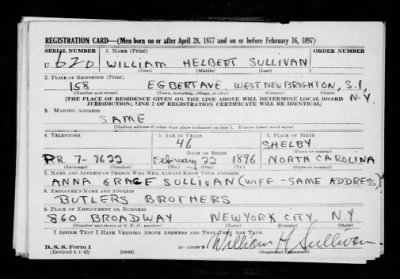 REGISTRATION CARD—(Men born on or after April 28, 1877 and on or before February 16, 1897)
SERIAL NUMBER 1. NAME (Print) ORDER NUMBER
U 620 WILLIAM HELBERT SULLIVAN
(First) (Middle) (Last)
2. PLACE OF RESIDENCE (Print)
158 EGBERT AVE, WEST NEW BRIGHTON, S.I. N.Y.
(Number and street) (Town, township, village, or city) (County) (State)
[THE PLACE OF RESIDENCE GIVEN ON THE LINE ABOVE WILL DETERMINE LOCAL BOARD
JURISDICTION; LINE 2 OF REGISTRATION CERTIFICATE WILL BE IDENTICAL]
3. MAILING ADDRESS
SAME
[Mailing address if other than place indicated on line 2. If same insert word same]
4. TELEPHONE 5. AGE IN YEARS 6. PLACE OF BIRTH
46 SHELBY
DATE OF BIRTH (Town or county)
RR. 7-7622 February 22 1896 NORTH CAROLINA
(Exchange) (Number) (Mo.) (Day) (Yr.) (State or country)
7. NAME AND ADDRESS OF PERSON WHO WILL ALWAYS KNOW YOUR ADDRESS
ANNA GRACE SULLIVAN (WIFE-SAME ADDRESS)
8. EMPLOYER'S NAME AND ADDRESS
BUTLERS BROTHERS
9. PLACE OF EMPLOYMENT OR BUSINESS
860 BROADWAY NEW YORK CITY N.Y.
(Number and street or R. F. D. number) (Town) (County) (State)
I AFFIRM THAT I HAVE VERIFIED ABOVE ANSWERS AND THAT THEY ARE TRUE.
D. S. S. Form 1
(Revised 4-1-42) (over) William H Sullivan